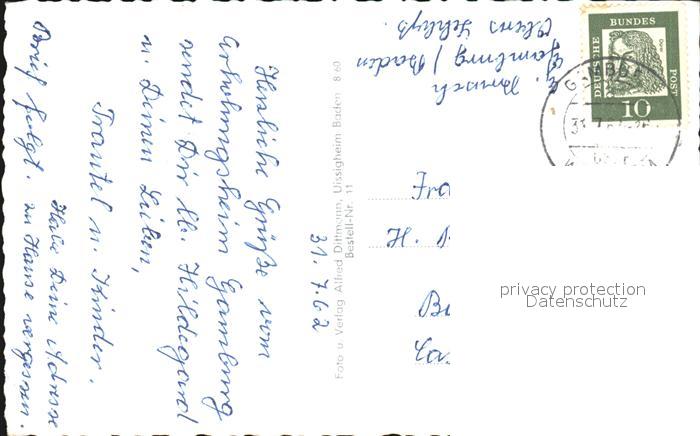 31. 7. 62
Herzliche Grüße vom
Erholungsheim Gamburg
sendet Dir lb. Hildegard
u. Deinen Lieben,
Trautel u. Kinder.
Habe Deine Adresse
zu Hause vergessen.
Brief folgt.
Foto u. Verlag Alfred Dittmann, Uissigheim Baden 8 60
Bestell-Nr. 11
Gamburg / Baden
DEUTSCHE
BUNDES
POST
10
Fra
H.
Be
privacy protection
Datenschutz